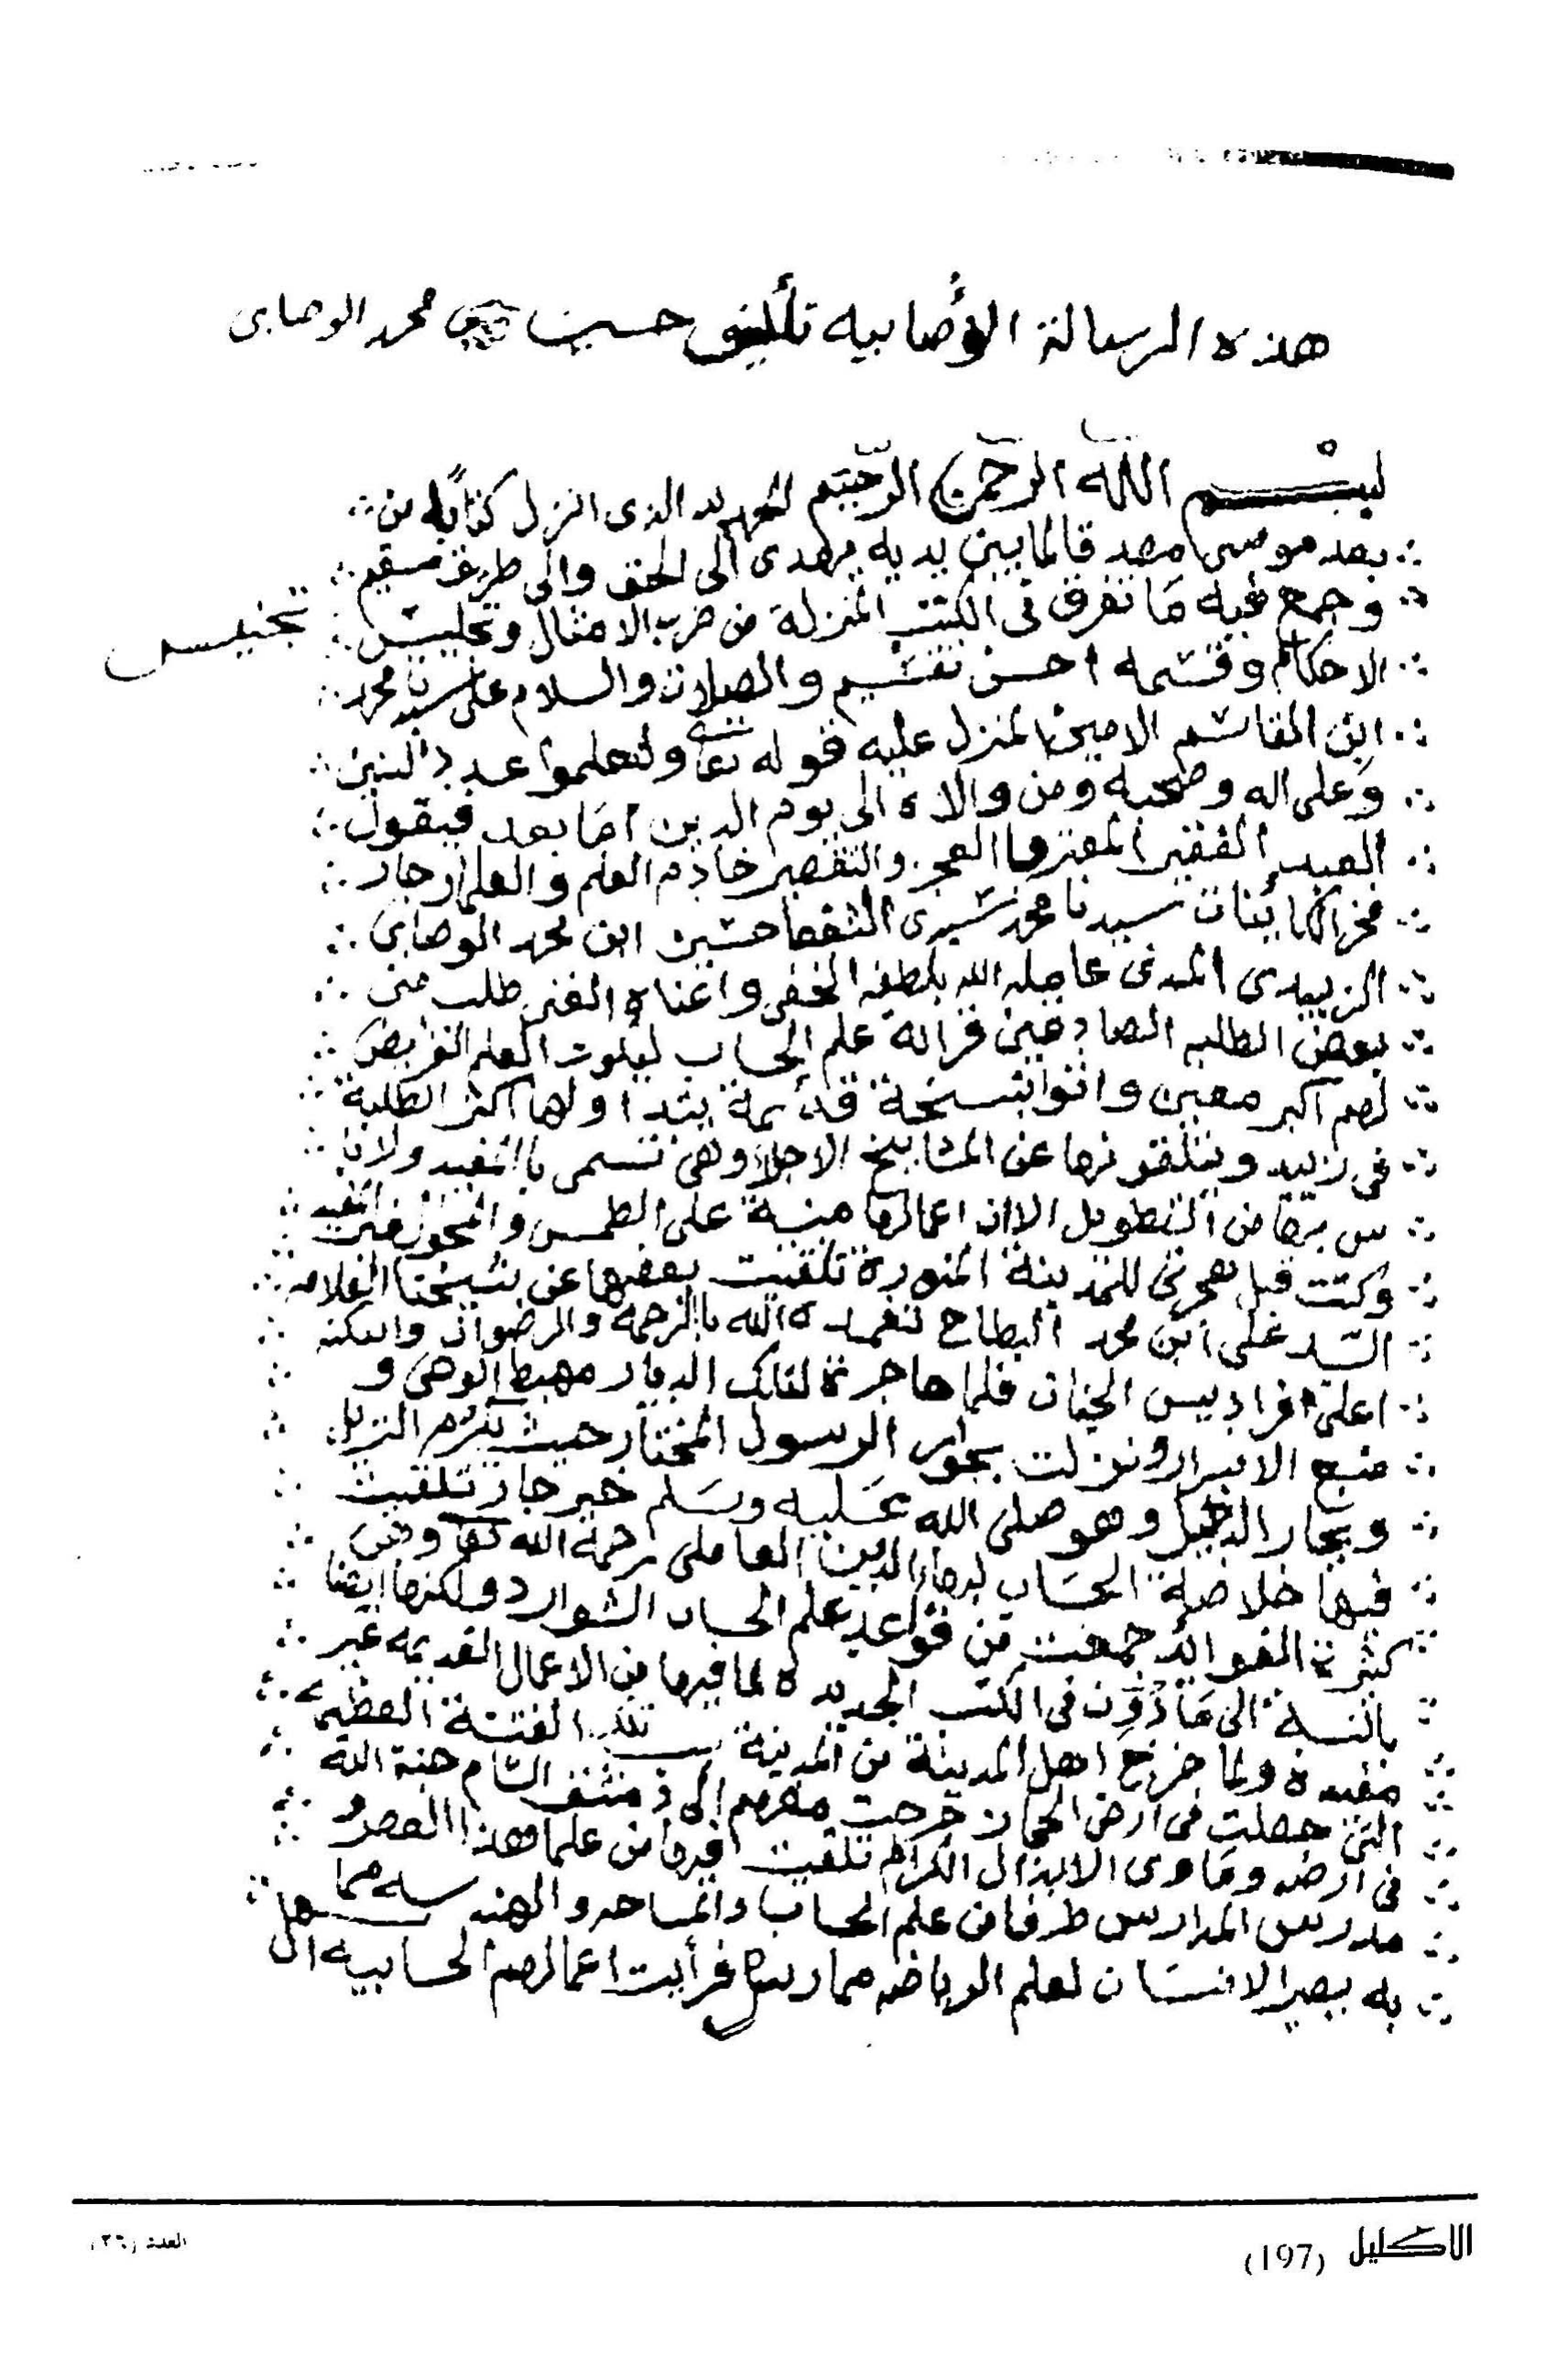 هذه الرسالة الوُصابيه تأليف حسين محمد الوصابى
بسْم اللّه الرحمن الرّحيم الحمد لله الذى انزل كتابًا من
بعد موسى مصدقا لما بين يديه يهدى الى الحق والى طريق مستقيم
وجمع فيه مَا تفرق فى الكتب المنزلة من ضرب الامثال وتجليس
تجنيس
الاحكام وقسمه احسن تقسيم والصلاة والسلام على سيدنا محمد
ابن القاسم الامين المنزل عليه قوله تعا ولتعلموا عدد السنين
وَعلى اله وصحبه ومن والاه الى يوم الدين امَا بعد فيقول
العبد الفقير المعترف العجز والتقصير خادم العلم والعلما جار
فخر الكاينات سيدنا محمد سيدى الشفعا حسين ابن محمد الوصابى
الزبيدى المدنى عامله الله بلطفه الخفى واغناه الغنى طلب منى
بعض الطلبه الصادقين قراته علم الحساب ليكون العلم الفرايض
لهم اكبر معين واتوا بنسخة قديمة يتداولها اكثر الطلبة
فى زبيد ويتلقونها عن المشايخ الاجلا وهى تسمى باالمفيد ولا با
س بها من التطويل الا ان اعمالها مبنية على الطمس والتحول غير مفيد
وكنت قبل هجرتى للمدينة المنورة تلقيت بعضها عن شيخنا العلامه
السّيد على ابن محمد البطاح تغمده الله باالرحمة والرضوان واسكنه
اعلى فراديس الجنان فلما هاجرة لتلك الديار مهبط الوحى و
منبع الابرار ونزلت بجوار الرسول المختار حيث يكرم النزيل
ويجار الدخيل وهو صلى الله عَليه وسَلم خير جار تلقيت
فيها خلاصة الحسَاب لبهاء الدين العاملى رحمة الله تعا وهى
كثيرة الفوائد جمعت من قواعد علم الحساب الشوارد ولكنها ايضا
بالنسبة الى مَا دُوِّن فى الكتب الجديده لما فيها من الاعمال القديمه غير
مفيده ولما خرج اهل المدينة من المدينة بسبب تلك الفتنة العظيمة
التى حصلت فى ارض الحجاز خرجت معهم الى دمشق الشام جنة الله
فى ارضه ومَاوى الابدال الكرام تلقيت فيها من علما هذا العصر و
مدرسى المدارس طرفا من علم الحساب والمساحه والهندسه مما
به يصير الانسَان لعلم الرياضه ممارسا فرأيت اعمالهم الحسابيه اسهل
الاكليل (197)
العدد (٢٦)